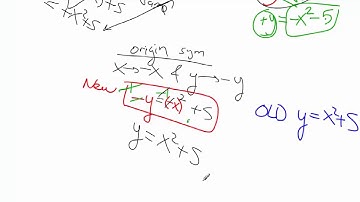 +y = -x²-5
origin sym
x→-x & y→-y
New
-y = (-x)² + 5
OLD y=x²+5
y=x²+5